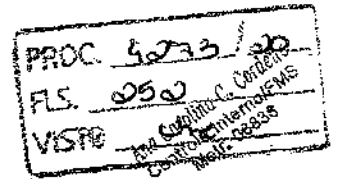 PROC. 4273/20
FLS. 252
VISTO
Ana Carolina C. Cordeiro
Controle Interno/FMS
Matr. 08835